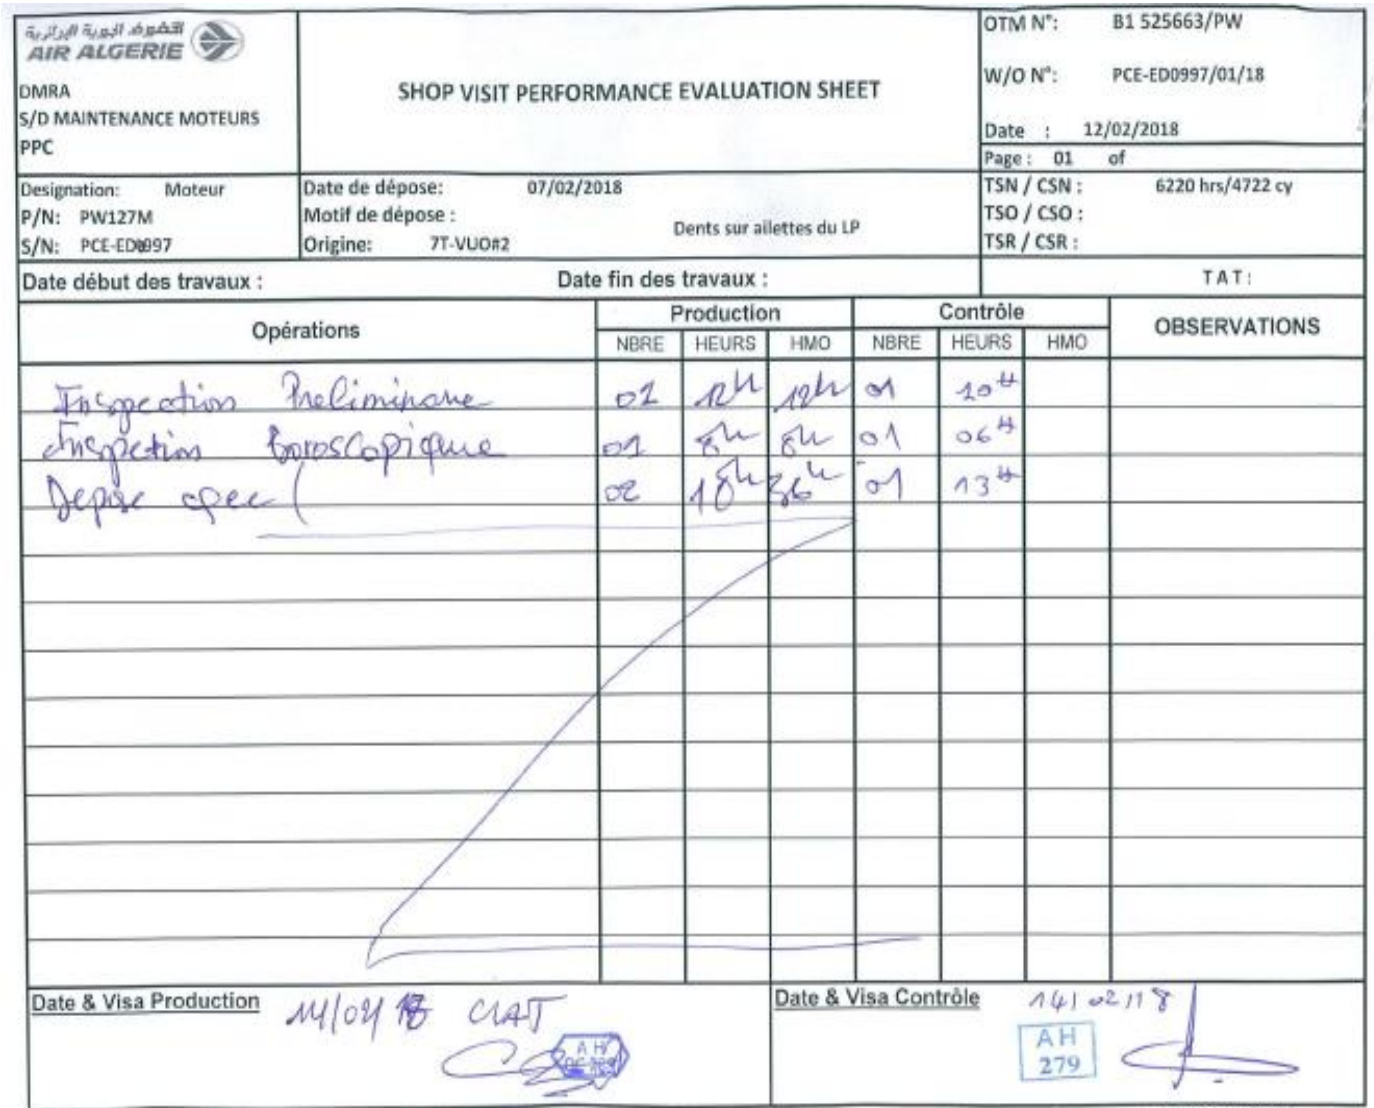 الخطوط الجوية الجزائرية
AIR ALGERIE
DMRA
S/D MAINTENANCE MOTEURS
PPC
SHOP VISIT PERFORMANCE EVALUATION SHEET
OTM N°: B1 525663/PW
W/O N°: PCE-ED0997/01/18
Date : 12/02/2018
Page : 01 of
Designation: Moteur
P/N: PW127M
S/N: PCE-ED0997
Date de dépose: 07/02/2018
Motif de dépose :
Dents sur ailettes du LP
Origine: 7T-VUO#2
TSN / CSN : 6220 hrs/4722 cy
TSO / CSO :
TSR / CSR :
Date début des travaux : Date fin des travaux : TAT:
Opérations Production Contrôle OBSERVATIONS
NBRE HEURS HMO NBRE HEURS HMO
Inspection Preliminare 01 12h 12h 01 10H
Inspection Boroscopique 01 8h 8h 01 06H
Depose 02 18h 36h 01 13H
Date & Visa Production 14/02/18
Date & Visa Contrôle 14/02/18
AH
AH
279